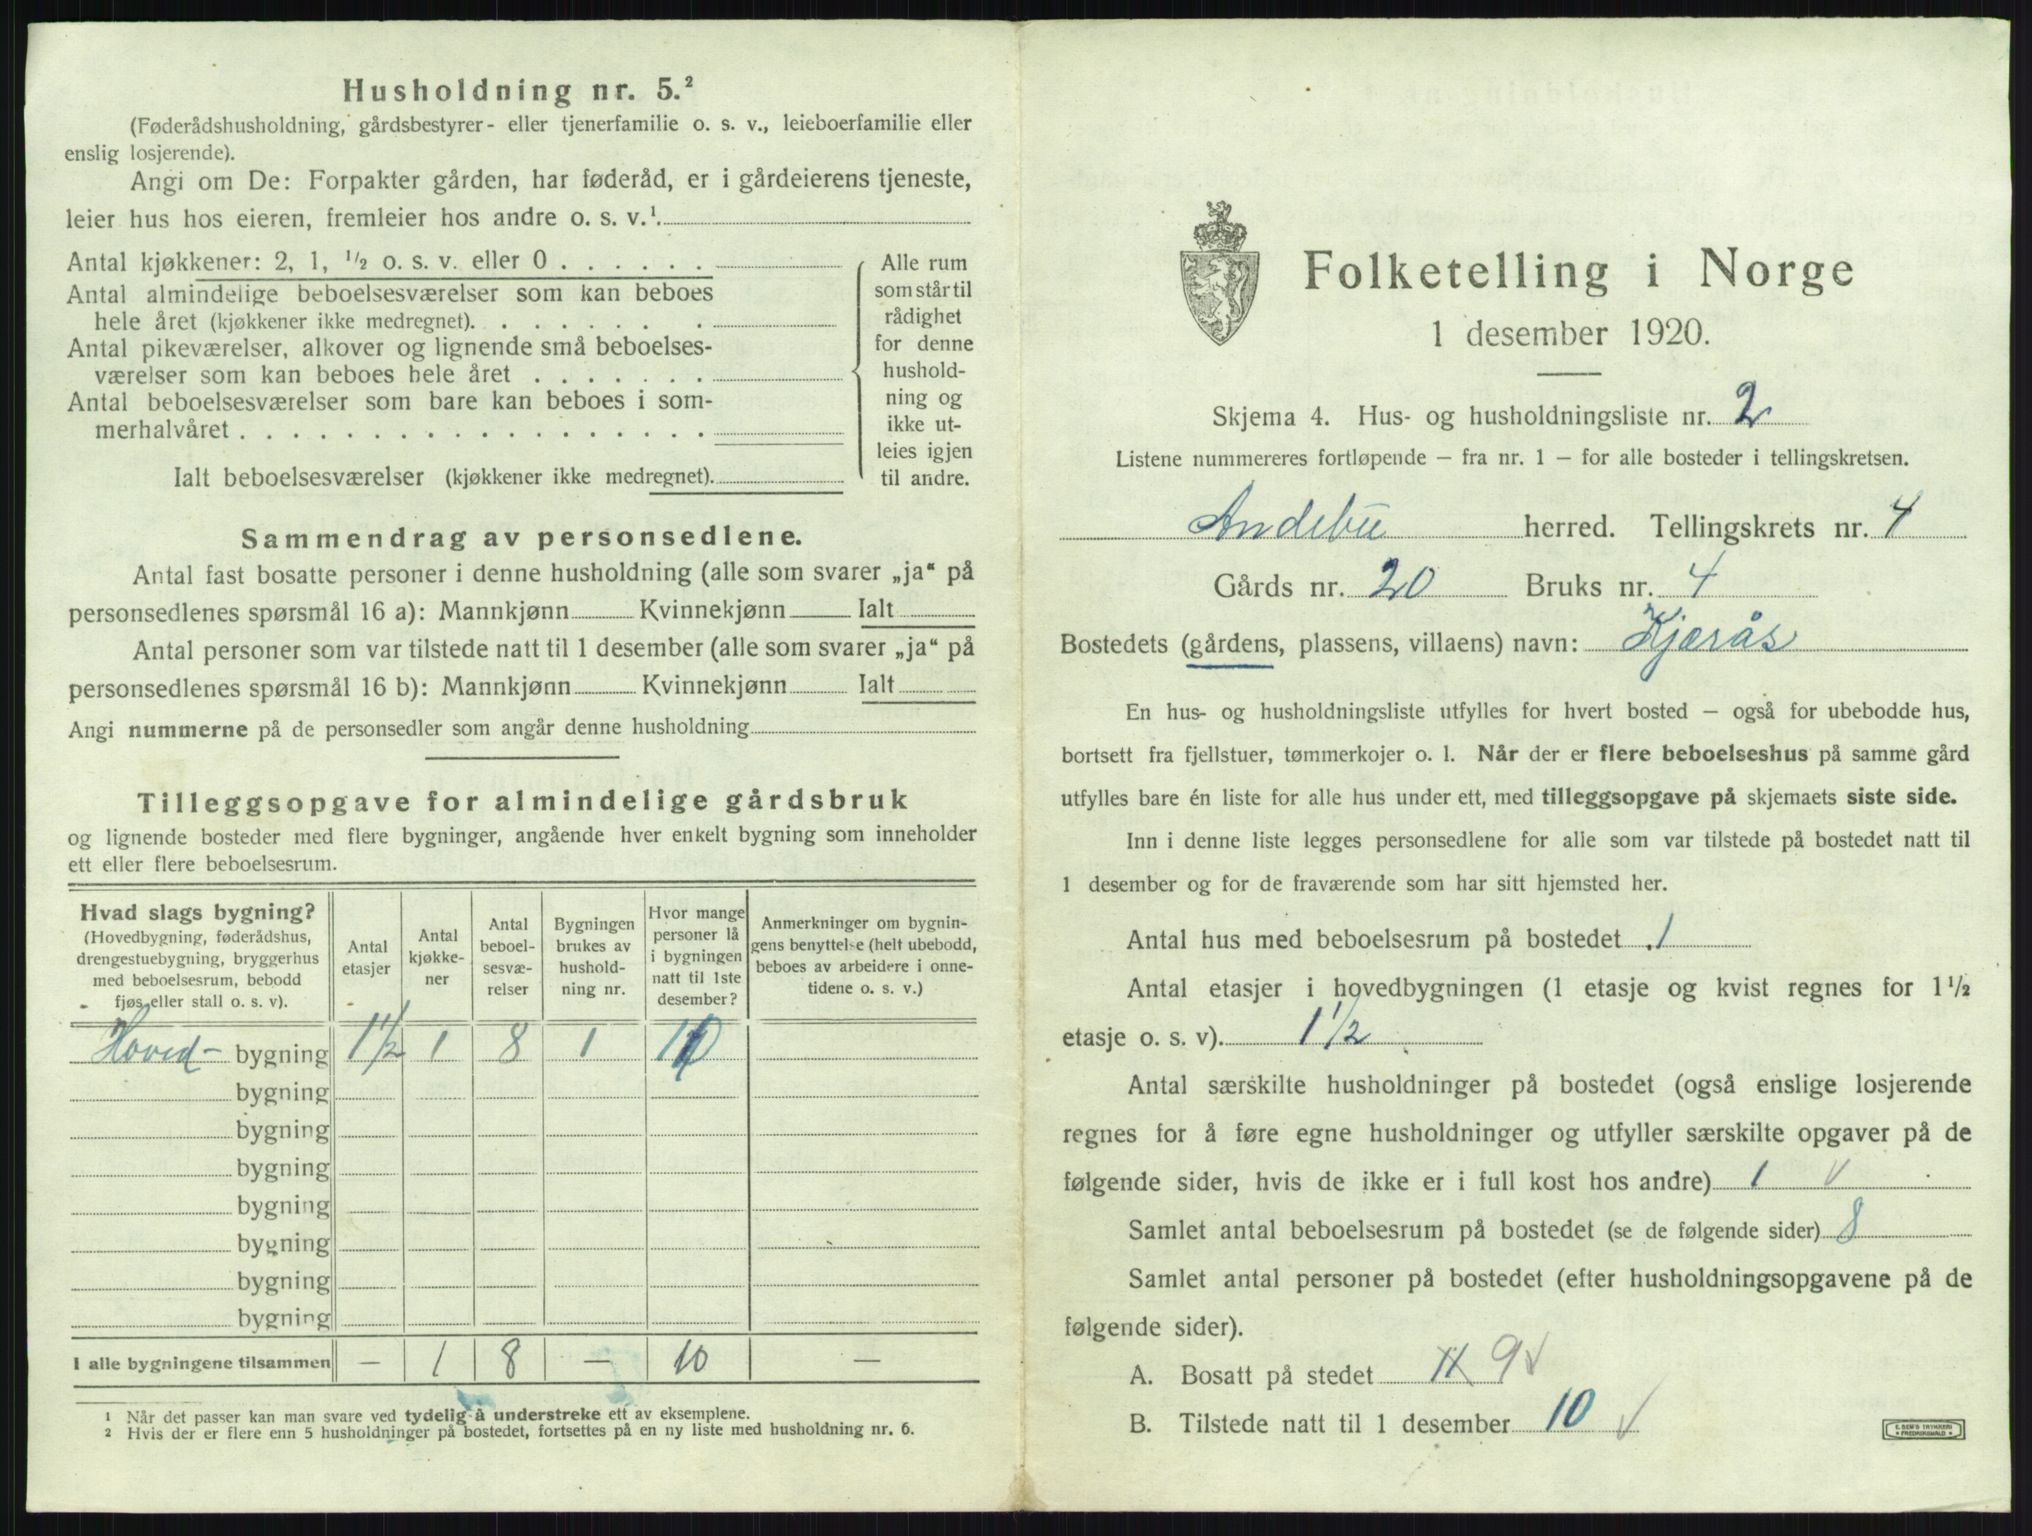 Husholdning nr. 5.²
(Føderådshusholdning, gårdsbestyrer- eller tjenerfamilie o. s. v., leieboerfamilie eller
enslig losjerende).
Angi om De: Forpakter gården, har føderåd, er i gårdeierens tjeneste,
leier hus hos eieren, fremleier hos andre o. s. v.¹.
Antal kjøkkener: 2, 1, ½ o. s. v. eller 0 . . . . . .
Antal almindelige beboelsesværelser som kan beboes
hele året (kjøkkener ikke medregnet). . . . . . . .
Antal pikeværelser, alkover og lignende små beboelses-
værelser som kan beboes hele året . . . . . . .
Antal beboelsesværelser som bare kan beboes i som-
merhalvåret . . . . . . . . . . . . . . . . . .
Ialt beboelsesværelser (kjøkkener ikke medregnet).
Alle rum
som står til
rådighet
for denne
hushold-
ning og
ikke ut-
leies igjen
til andre.
Sammendrag av personsedlene.
Antal fast bosatte personer i denne husholdning (alle som svarer „ja“ på
personsedlenes spørsmål 16 a): Mannkjønn Kvinnekjønn Ialt
Antal personer som var tilstede natt til 1 desember (alle som svarer „ja“ på
personsedlenes spørsmål 16 b): Mannkjønn Kvinnekjønn Ialt
Angi nummerne på de personsedler som angår denne husholdning
Tilleggsopgave for almindelige gårdsbruk
og lignende bosteder med flere bygninger, angående hver enkelt bygning som inneholder
ett eller flere beboelsesrum.
Hvad slags bygning?
(Hovedbygning, føderådshus,
drengestuebygning, bryggerhus
med beboelsesrum, bebodd
fjøs eller stall o. s. v).
Antal
etasjer
Antal
kjøkke-
ner
Antal
beboel-
sesvæ-
relser
Bygningen
brukes av
hushold-
ning nr.
Hvor mange
personer lå
i bygningen
natt til 1ste
desember?
Anmerkninger om bygnin-
gens benyttelse (helt ubebodd,
beboes av arbeidere i onne-
tidene o. s. v.)
Hoved- bygning 1½ 1 8 1 10
bygning
bygning
bygning
bygning
bygning
bygning
bygning
I alle bygningene tilsammen — 1 8 — 10 —
¹ Når det passer kan man svare ved tydelig å understreke ett av eksemplene.
² Hvis der er flere enn 5 husholdninger på bostedet, fortsettes på en ny liste med husholdning nr. 6.
Folketelling i Norge
1 desember 1920.
Skjema 4. Hus- og husholdningsliste nr. 2
Listene nummereres fortløpende — fra nr. 1 — for alle bosteder i tellingskretsen.
Andebu herred. Tellingskrets nr. 4
Gårds nr. 20 Bruks nr. 4
Bostedets (gårdens, plassens, villaens) navn: Kjærås
En hus- og husholdningsliste utfylles for hvert bosted — også for ubebodde hus,
bortsett fra fjellstuer, tømmerkojer o. l. Når der er flere beboelseshus på samme gård
utfylles bare én liste for alle hus under ett, med tilleggsopgave på skjemaets siste side.
Inn i denne liste legges personsedlene for alle som var tilstede på bostedet natt til
1 desember og for de fraværende som har sitt hjemsted her.
Antal hus med beboelsesrum på bostedet 1
Antal etasjer i hovedbygningen (1 etasje og kvist regnes for 1½
etasje o. s. v). 1½
Antal særskilte husholdninger på bostedet (også enslige losjerende
regnes for å føre egne husholdninger og utfyller særskilte opgaver på de
følgende sider, hvis de ikke er i full kost hos andre) 1 v
Samlet antal beboelsesrum på bostedet (se de følgende sider) 8
Samlet antal personer på bostedet (efter husholdningsopgavene på de
følgende sider).
A. Bosatt på stedet 11 9 v
B. Tilstede natt til 1 desember 10 v
E. SEM'S TRYKKERI
• FREDRIKSHALD •